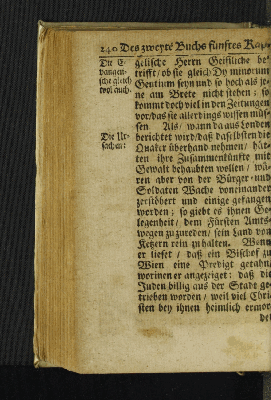 240 Des zweyte Buchs fünftes Kap.
Die E-
vangeli-
sche gleich
wol auch.
gelische Herrn Geistliche be-
trifft/ ob sie gleich Dy minorum
Gentium seyn und so hoch als je-
ne am Brete nicht stehen: so
kommt doch viel in den Zeitungen
vor/ das sie allerdings wissen müs-
sen Als/ wann da aus Londen
Die Ur-
sachen:
berichtet wird/ daß daselbsten die
Quaker überhand nehmen/ hät-
ten ihre Zusammenkünfte mit
Gewalt behaubten wollen/ wä-
ren aber von der Bürger und
Soldaten Wache voneinander
zerstöbert und einige gefangen
worden; so giebt es ihnen Ge-
legenheit/ dem Fürsten Amts-
wegen zuzureden/ sein Land von
Ketzern rein zu halten. Wenn
er lieset/ daß ein Bischof zu
Wien eine Predigt gethan
worinen er angezeiget: daß die
Juden billig aus der Stadt ge-
trieben worden/ weil viel Chri-
sten bey ihnen heimlich ermor-